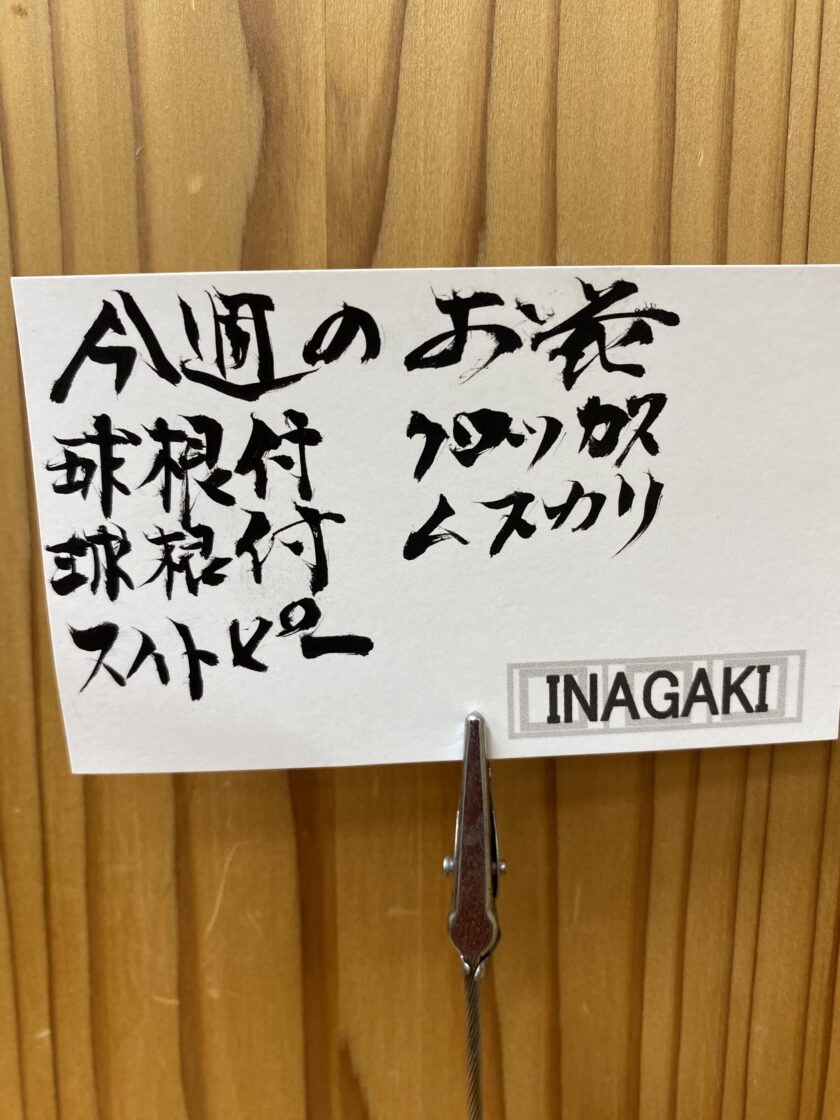 今週の お花
球根付 クロッカス
球根付 ムスカリ
スイトピー
INAGAKI